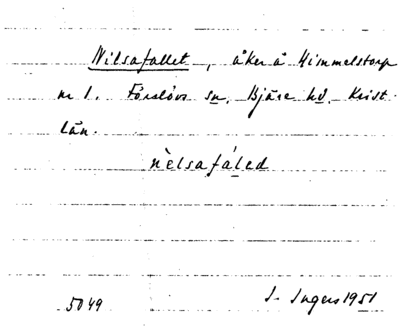 Nilsafallet, åker å Himmelstorp
nr 1. Förslövs sn, Bjäre hd, Krist.
län.
nèlsafáled
5049 I. Ingers 1951